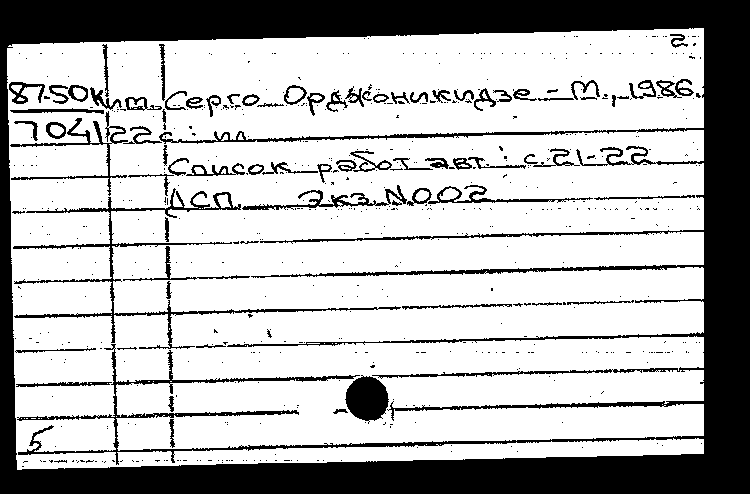 2.
87-50к им. Серго Орджоникидзе - М., 1986.
7041 22 с. : ил.
Список работ авт. : с. 21-22.
ДСП. Экз. N 002
5